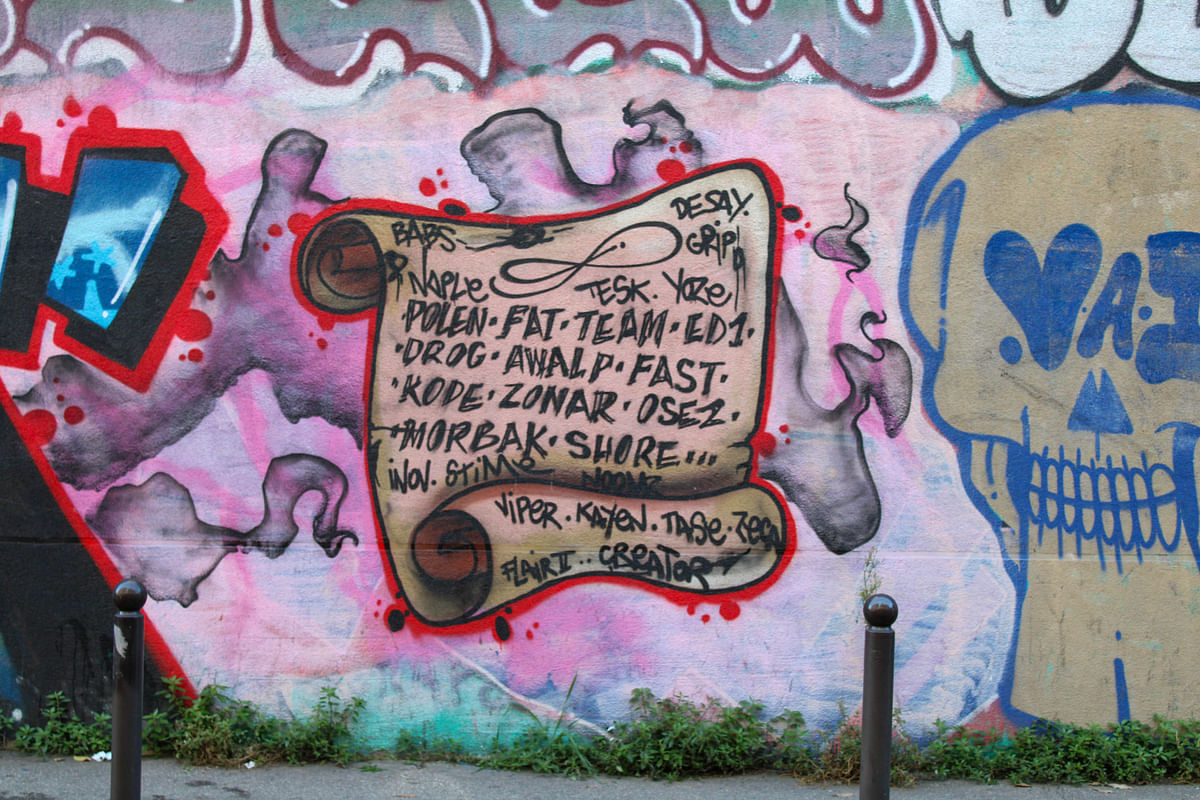 BABS DESAY.
GRIP
NAPLE TESK. YOZE
·POLEN·FAT·TEAM·ED1·
·DROG·AWALP·FAST·
·KODE·ZONAR·OSEZ·
·MORBAK·SHORE...
iNOV. STiMO
ViPER·KAYEN·TASE·
FLAIR II.. CREATOR